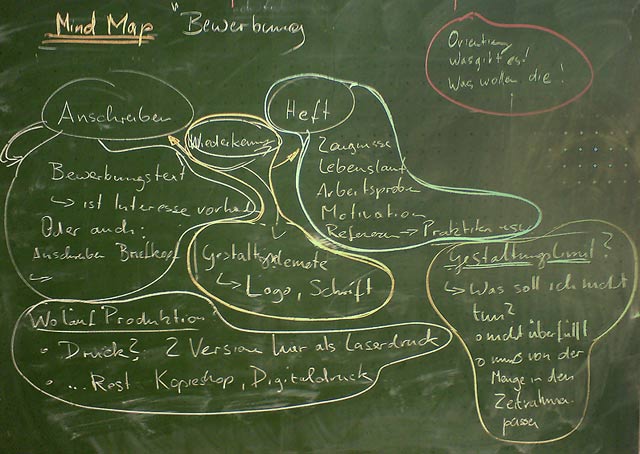 Mind Map "Bewerbung
Orientierung
Was gibt es!
Was wollen die!
Anschreiben
Wiederkennung
Heft
Bewerbungstext
↳ ist Interesse vorhad
Oder auch:
Anschreiben Briefkopf
Zeugnisse
Lebenslauf
Arbeitsproben
Motivation
Referenzen → Praktiten
Gestaltgselemete
↳ Logo, Schrift
Gestaltungslimit?
↳ Was soll ich nicht
tun?
o nicht überfüllt
o muß von der
Menge in den
Zeitrahmen
passen
Wo läuft Produktion?
• Druck? 2 Version nur als Laserdruck
• ... Rest Kopieshop, Digitaldruck